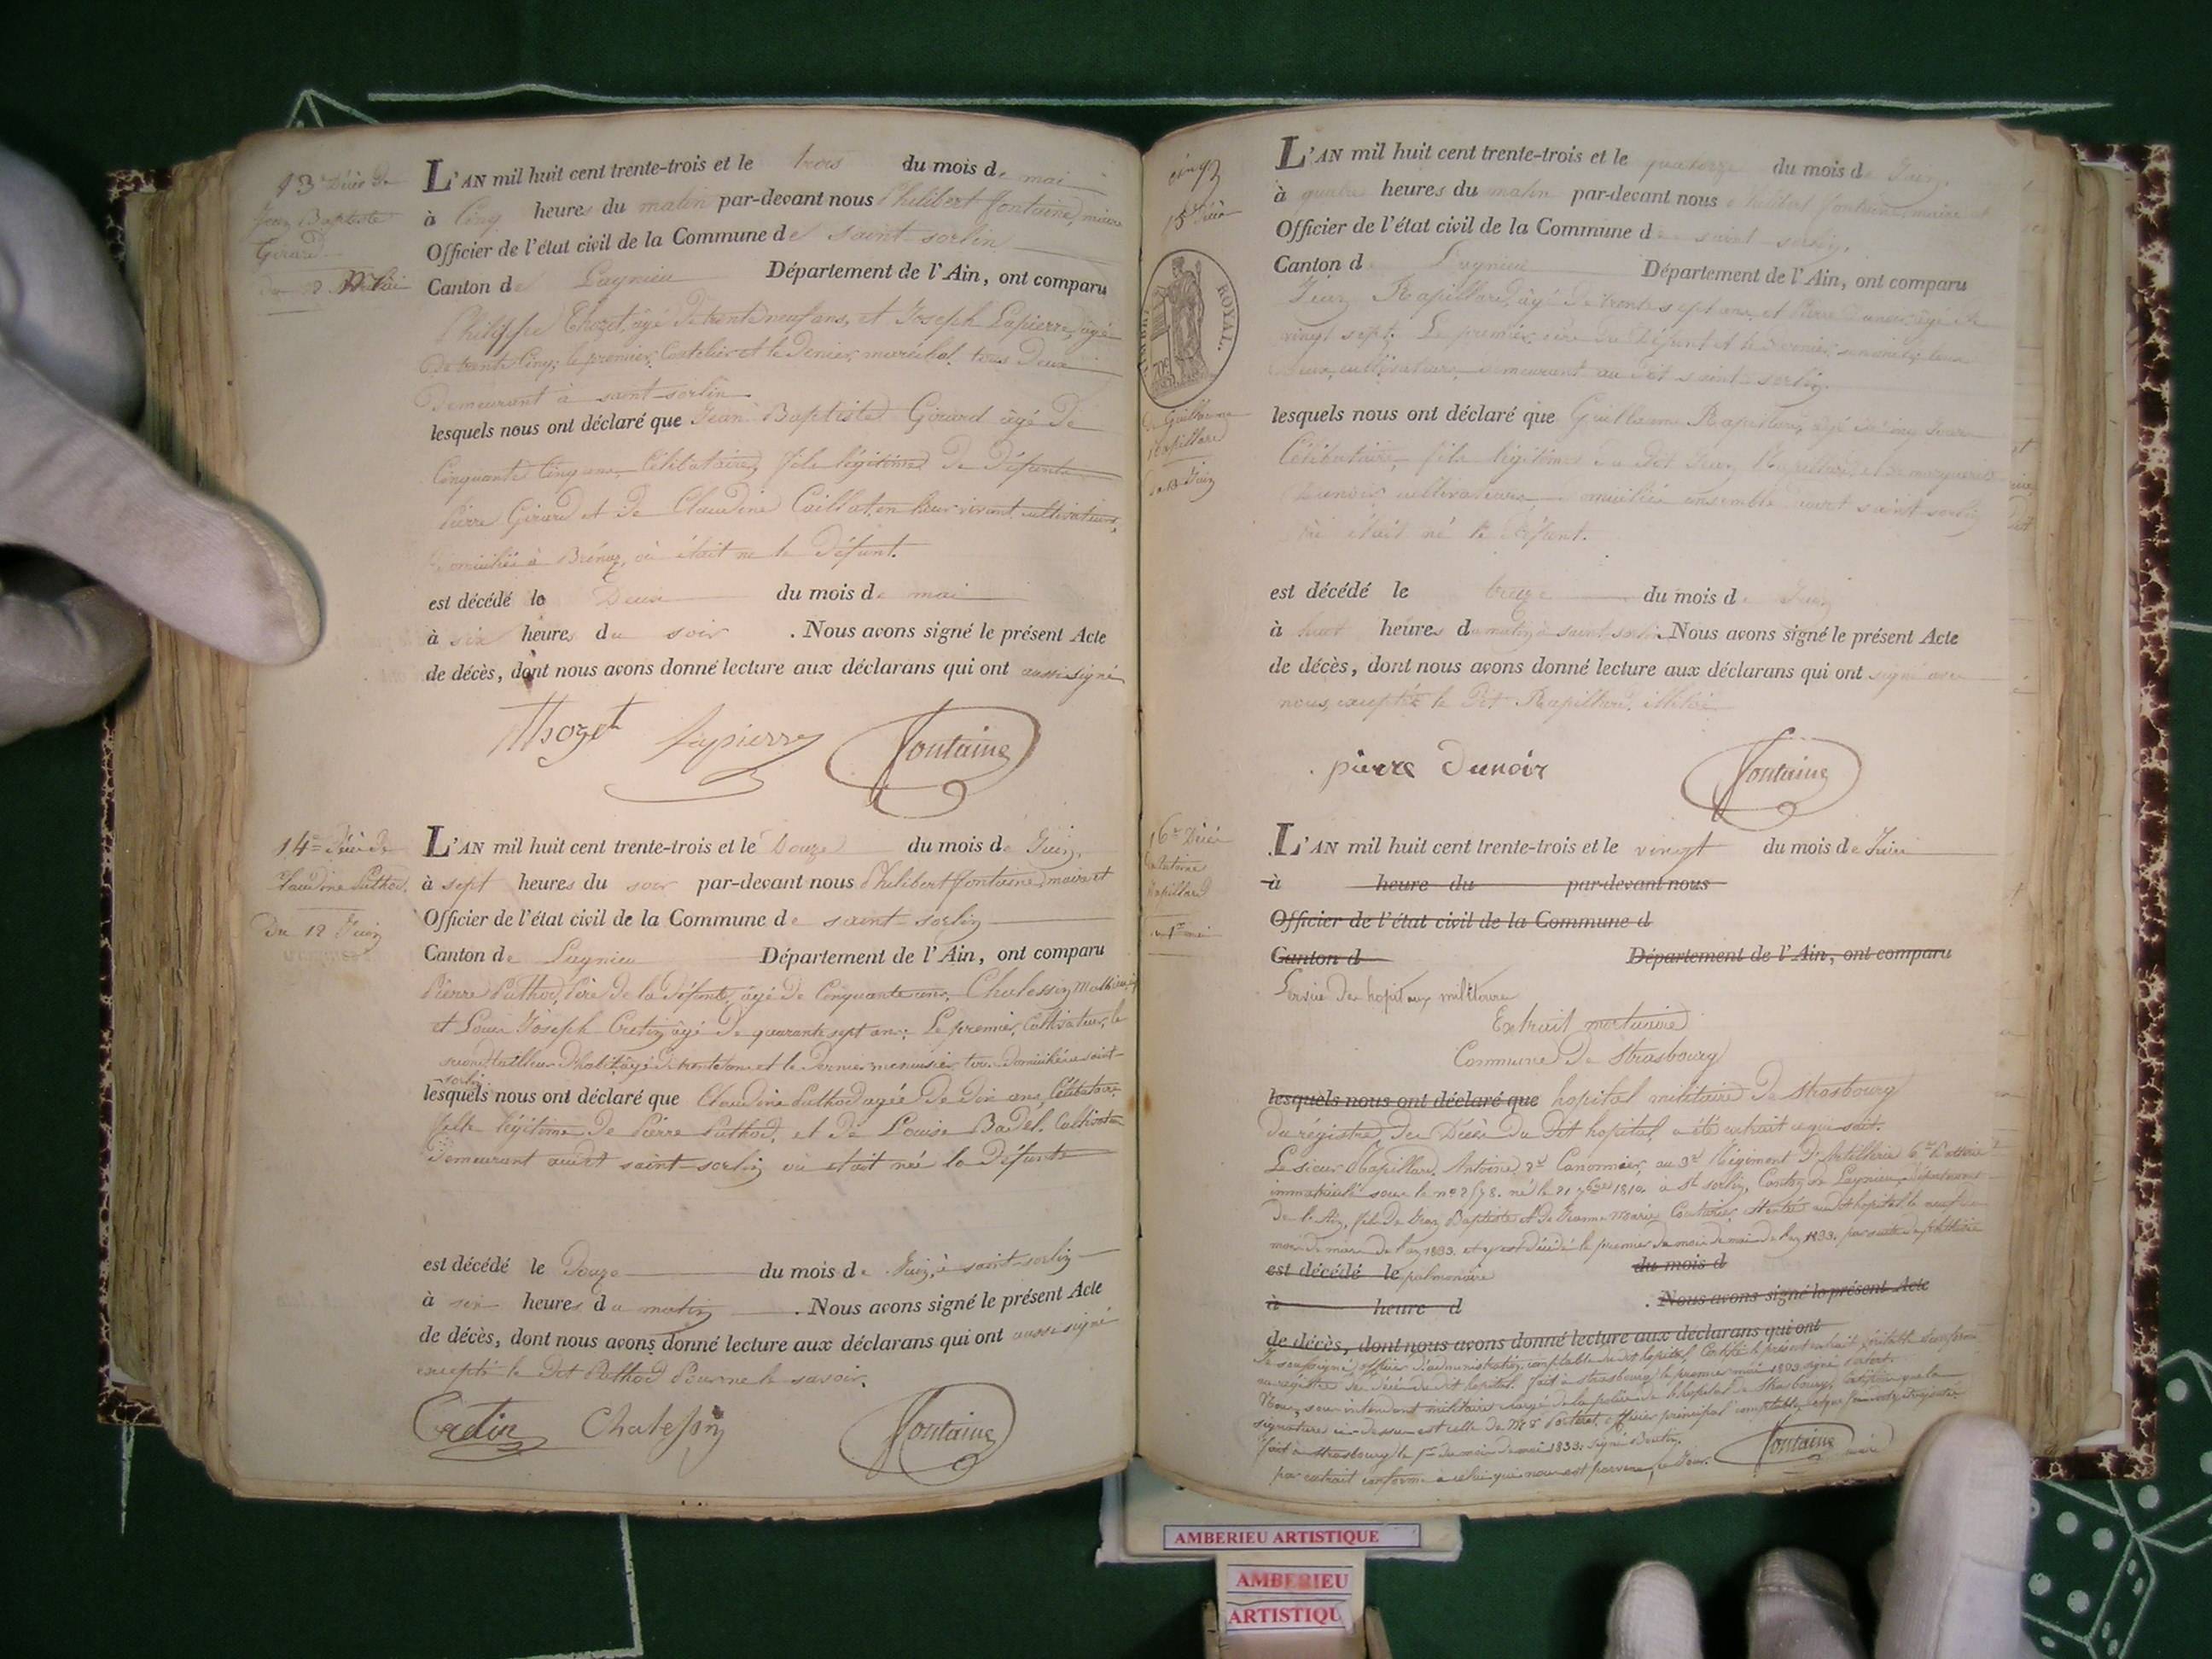 13e Décès de
Jean Baptiste
Girard
du 2 Mai
L'AN mil huit cent trente-trois et le trois du mois de mai
à cinq heures du matin par-devant nous Philibert fontaine, maire
Officier de l'état civil de la Commune de saint-sorlin
Canton de Lagnieu Département de l'Ain, ont comparu
Philippe Thozet, âgé de trente neuf ans, et Joseph Lapierre, âgé
de trente cinq; le premier, Coutelier et le dernier, maréchal, tous deux
demeurant à saint-sorlin
lesquels nous ont déclaré que Jean Baptiste Girard âgé de
Cinquante Cinq ans, Célibataire, fils légitime de défunts
Pierre Girard et de Claudine Caillat, en leur vivant cultivateurs,
domiciliés à où était né le défunt.
est décédé le Deux du mois de mai
à six heures du soir . Nous avons signé le présent Acte
de décès, dont nous avons donné lecture aux déclarans qui ont aussi signé
Thozet Lapierre Fontaine
14e Décès de
Claudine Puthod
du 12 Juin
L'AN mil huit cent trente-trois et le Douze du mois de Juin,
à sept heures du soir par-devant nous Philibert fontaine, maire et
Officier de l'état civil de la Commune de saint-sorlin
Canton de Lagnieu Département de l'Ain, ont comparu
Pierre Puthod, Père de la défunte, âgé de Cinquante ans, Chalessin
et Louis Joseph Cretin âgé de quarante sept ans; Le premier, Cultivateur, le
second tailleur d'habit, âgé de trente ans et le dernier menuisier, tous domiciliés à saint-
sorlin
lesquels nous ont déclaré que Claudine Puthod agée de dix ans, Célibataire
fille légitime de Pierre Puthod, et de Louise Badel, Cultivateurs
demeurant audit saint-sorlin où était née la défunte
est décédé le Douze du mois de Juin, à saint-sorlin
à six heures du matin . Nous avons signé le présent Acte
de décès, dont nous avons donné lecture aux déclarans qui ont aussi signé
excepté le dit Puthod Pour ne le savoir.
Cretin Chalessin Fontaine
cinq
15e Décès
ROYAL.
de Guillaume
Rapillard
du 13 Juin
L'AN mil huit cent trente-trois et le quatorze du mois de Juin,
à quatre heures du matin par-devant nous Philibert fontaine, maire et
Officier de l'état civil de la Commune de saint-sorlin,
Canton de Lagnieu Département de l'Ain, ont comparu
Jean Rapillard, âgé de trente sept ans, et Pierre Dunoir, âgé de
vingt sept. Le premier, père du défunt et le dernier, tous
deux cultivateurs demeurant au dit saint-sorlin.
lesquels nous ont déclaré que Guillaume Rapillard, âgé de jours
Célibataire, fils légitime du dit Jean Rapillard, et de marguerite
Dunoir cultivateurs domiciliés ensemble audit saint-sorlin
où était né le défunt.
est décédé le treize du mois de Juin
à huit heures du matin à saint-sorlin. Nous avons signé le présent Acte
de décès, dont nous avons donné lecture aux déclarans qui ont signé avec
nous, excepté le dit Rapillard, illitéré
pierre Dunoir Fontaine
16e Décès
Antoine
Rapillard
du 1er mai
L'AN mil huit cent trente-trois et le vingt du mois de Juin
à heure du par-devant nous
Officier de l'état civil de la Commune d
Canton d Département de l'Ain, ont comparu
Service des hopitaux militaires
Extrait mortuaire
Commune de Strasbourg
lesquels nous ont déclaré que hopital militaire de Strasbourg
Du régistre des Décès du dit hopital a été extrait ce qui suit.
Le sieur Rapillard, Antoine, 2d Canonnier, au 3e Régiment d'Artillerie 6e Batterie
immatriculé sous le no né le 21 7bre 1810, à St sorlin, Canton de Lagnieu, département
de l'Ain, fils de Jean Baptiste et de Jeanne Marie Couturier, est entré au dit hopital le neuf du
mois de mars de l'an 1833, et y est décédé le premier du mois de mai de l'an 1833, par suite de phthisie
est décédé le pulmonaire du mois d
à heure d . Nous avons signé le présent Acte
de décès, dont nous avons donné lecture aux déclarans qui ont
Je soussigné, officier d'administration, comptable du dit hopital, Certifie le présent extrait véritable et conforme
au régistre des décès du dit hopital. fait à Strasbourg le premier mai 1833, signé
Nous, sous intendant militaire chargé de la police de l'hopital de Strasbourg, Certifions que la
signature ci-dessus est celle de Mr officier principal comptable,
fait à Strasbourg le 1er du mois de mai 1833, signé
par extrait conforme à celui qui nous est parvenu, ce jour. Fontaine maire
AMBERIEU ARTISTIQUE
AMBERIEU
ARTISTIQU